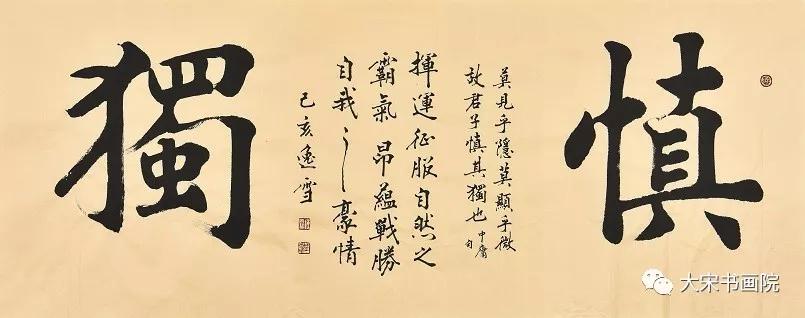 慎
莫見乎隱莫顯乎微
故君子慎其獨也 中庸句
揮運征服自然之
霸氣昂蘊戰勝
自我之豪情
己亥 雪
獨
大宋书画院